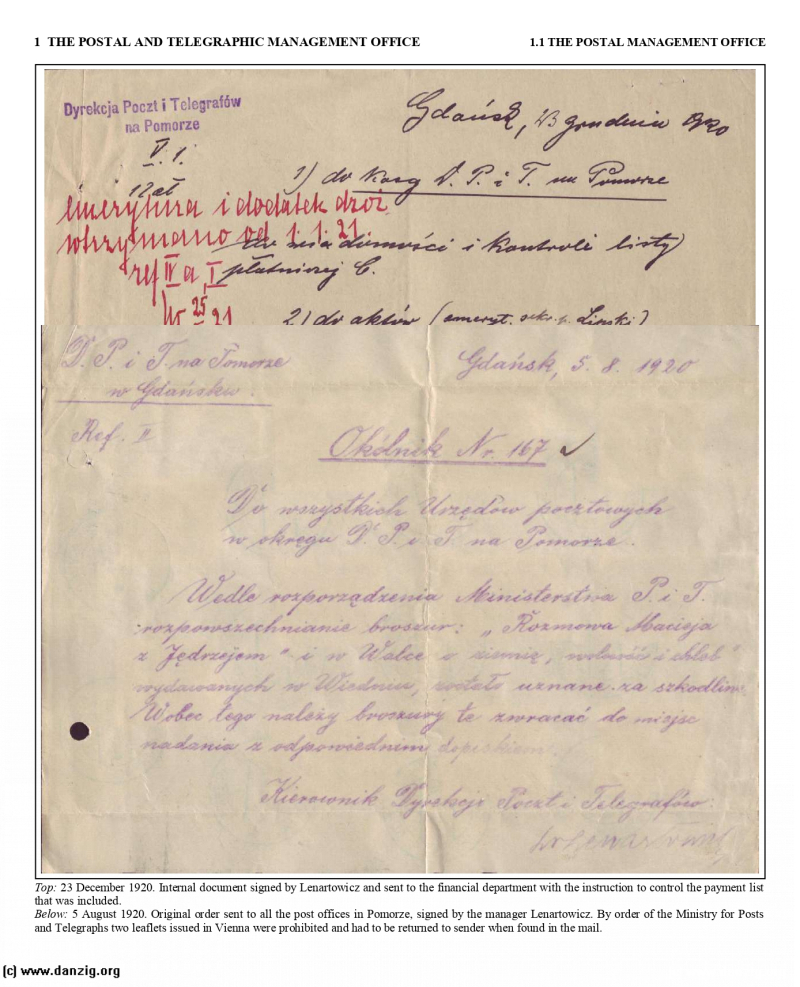 1 THE POSTAL AND TELEGRAPHIC MANAGEMENT OFFICE
1.1 THE POSTAL MANAGEMENT OFFICE
Dyrekcja Poczt i Telegrafów
na Pomorze
Gdańsk, 23 grudnia 1920
V. 1.
1) do Kasy D. P. i T. na Pomorze
emerytura i dodatek droż.
wtrzymano od 1. 1. 21.
wiadomości i kontroli listy
ref IV a, I
płatniczej C.
25
21
2) do aktów (emeryt. sekr. p. Linski)
D. P. i T. na Pomorze
w Gdańsku.
Gdańsk, 5. 8. 1920
Ref. II
Okólnik Nr. 167
Do wszystkich Urzędów pocztowych
w okręgu D. P. i T. na Pomorze.
Wedle rozporządzenia Ministerstwa P. i T.
rozpowszechnianie broszur: „Rozmowa Macieja
z Jędrzejem" i w Walce o ziemię, wolność i chleb"
wydawanych w Wiedniu, zostało uznane za szkodliwe
Wobec tego należy broszury te zwracać do miejsc
nadania z odpowiednim dopiskiem.
Kierownik Dyrekcji Poczt i Telegrafów:
Lenartowicz
Top: 23 December 1920. Internal document signed by Lenartowicz and sent to the financial department with the instruction to control the payment list
that was included.
Below: 5 August 1920. Original order sent to all the post offices in Pomorze, signed by the manager Lenartowicz. By order of the Ministry for Posts
and Telegraphs two leaflets issued in Vienna were prohibited and had to be returned to sender when found in the mail.
(c) www.danzig.org